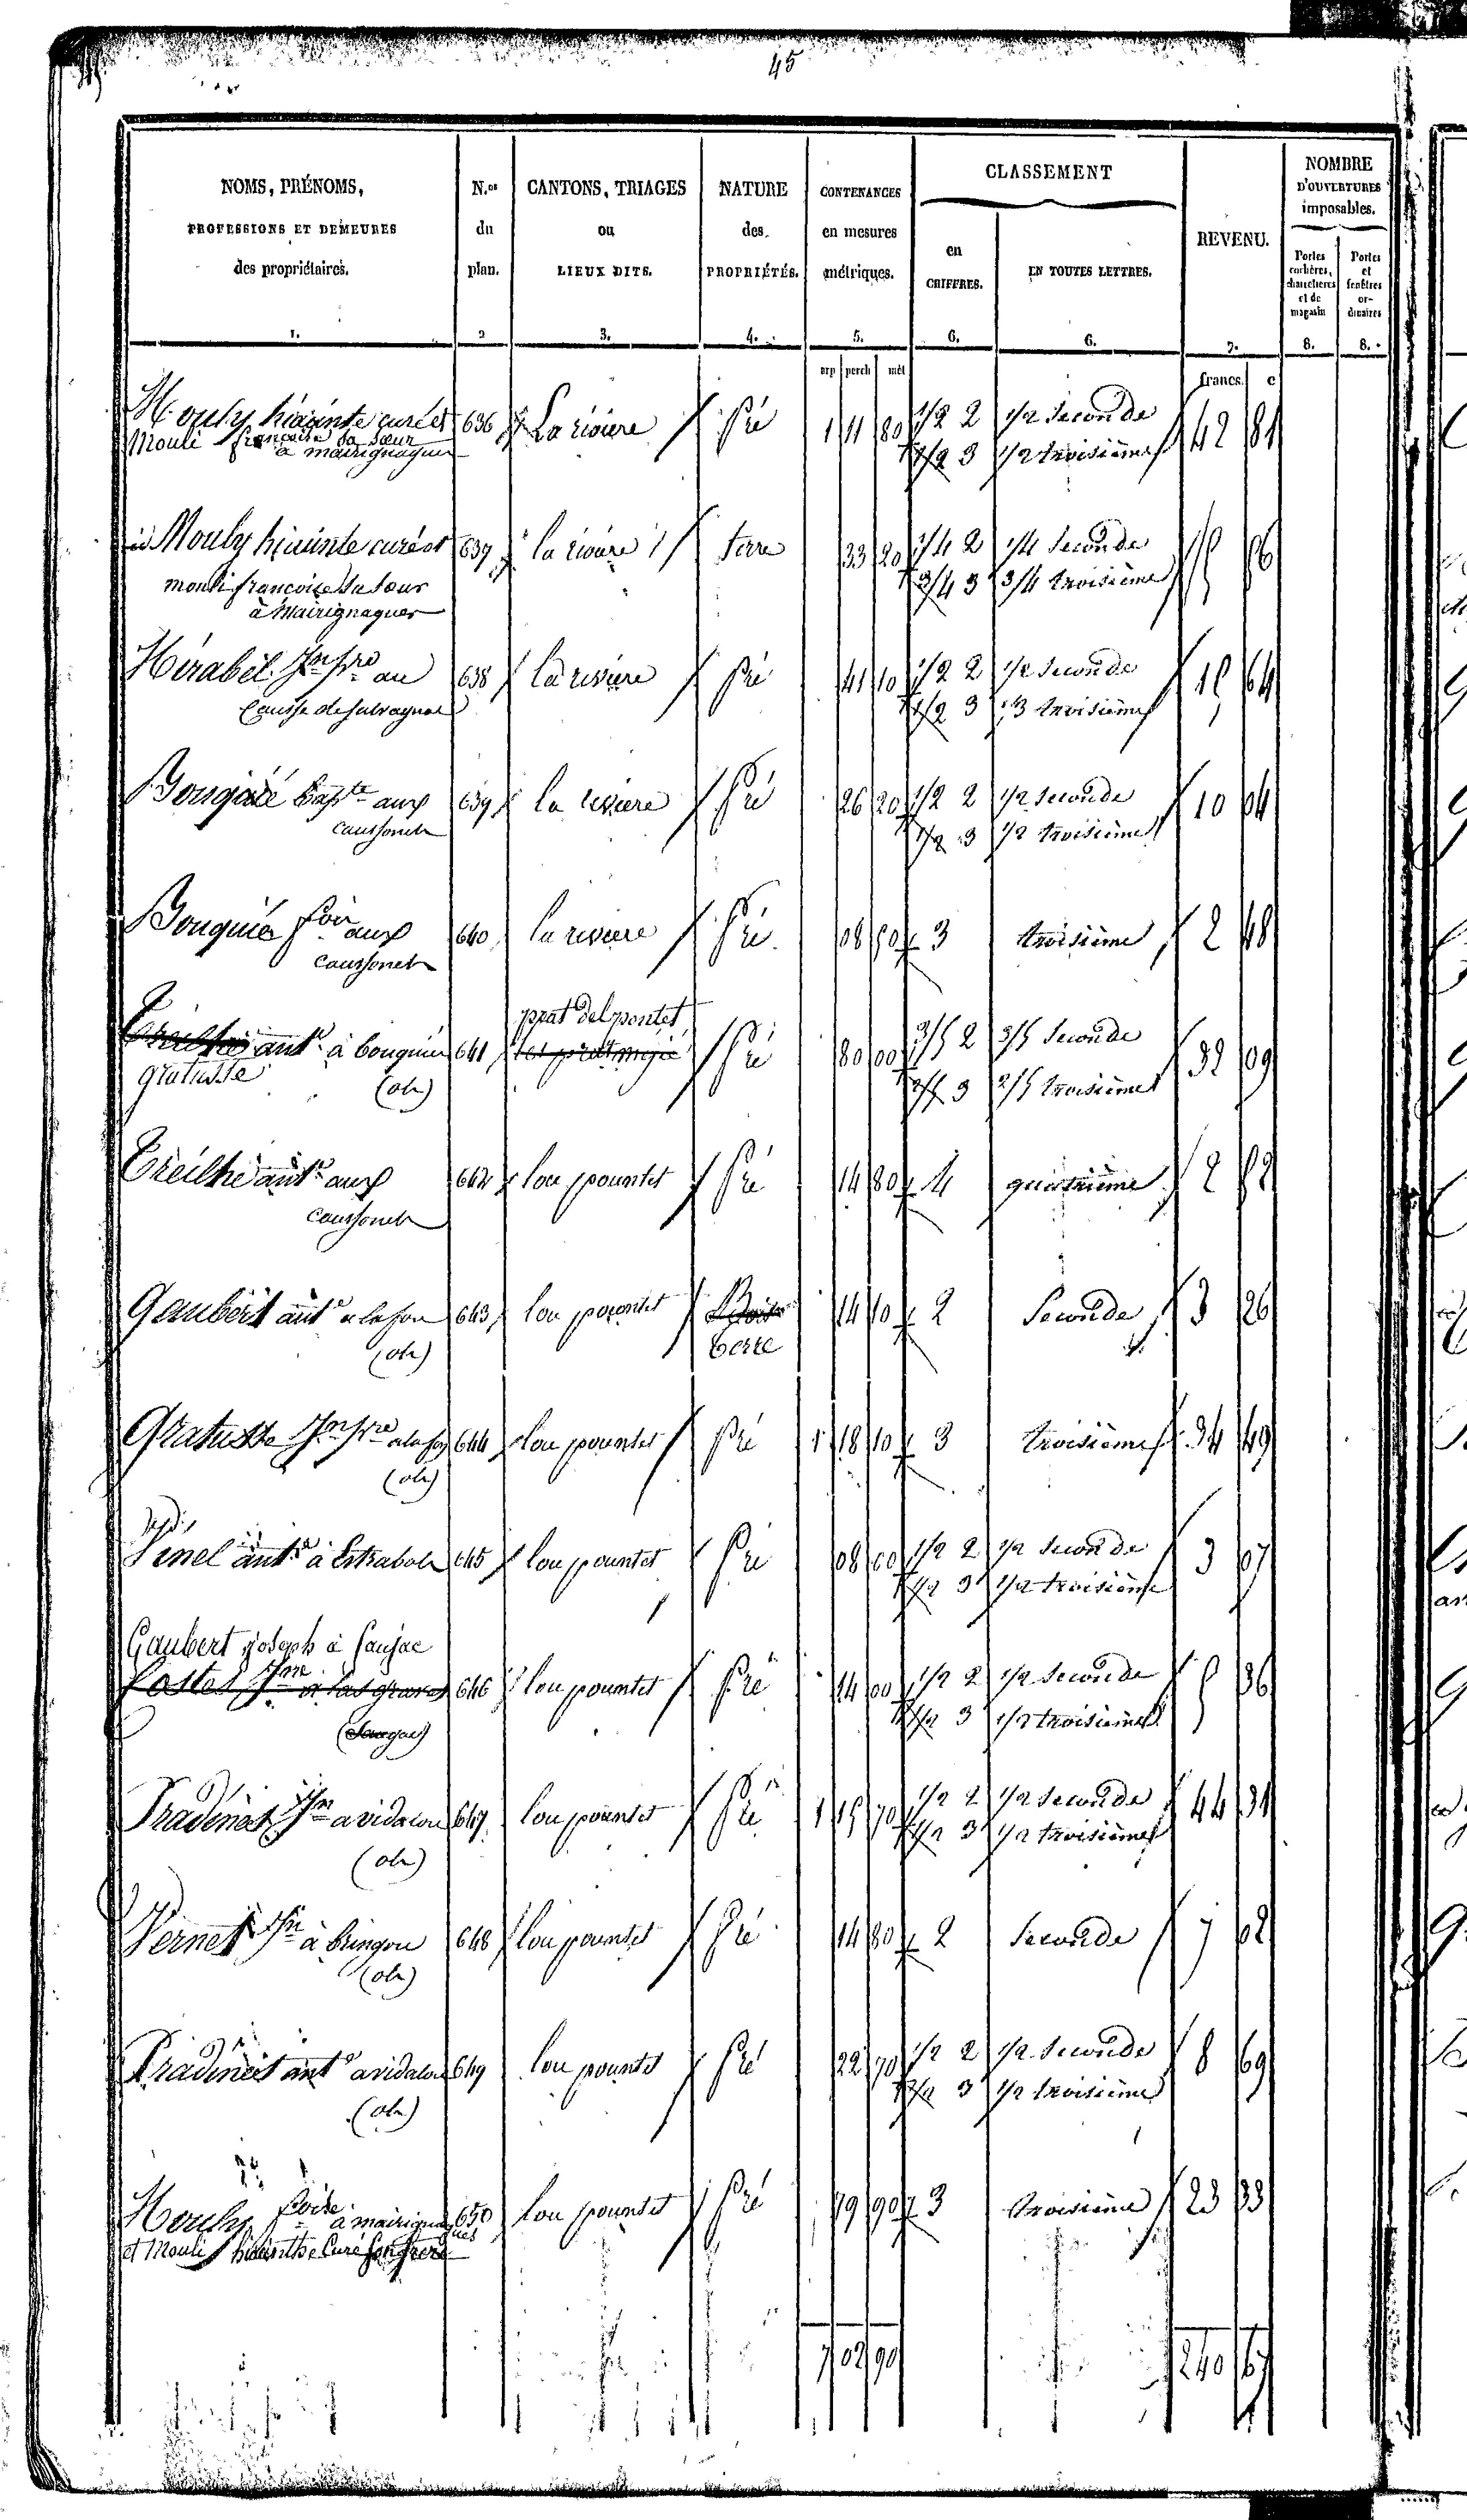 45
NOMS, PRÉNOMS, PROFESSIONS ET DEMEURES des propriétaires. 1.
N.os du plan. 2
CANTONS, TRIAGES ou LIEUX DITS. 3.
NATURE des PROPRIÉTÉS. 4.
CONTENANCES en mesures métriques. 5.
CLASSEMENT
en CHIFFRES. 6.
EN TOUTES LETTRES. 6.
REVENU. 7.
NOMBRE D'OUVERTURES imposables.
Portes cochères, charretières et de magasin 8.
Portes et fenêtres ordinaires 8.
arp perch mèt francs. c
Mouly hiacinte curé et 636 La rivière Pré 1 11 80 1/2 2 1/2 Seconde 42 81
Mouli françoise sa sœur 1/2 3 1/2 troisième
à mairignagues
Mouly hiacinte curé et 637 la rivière terre 33 20 1/4 2 1/4 Seconde 5 56
mouli françoise sa sœur 3/4 3 3/4 troisième
à Mairignagues
Mirabel Jn pre au 638 la rivière Pré 41 10 1/2 2 1/2 Seconde 15 64
Causse de salvagnac 1/2 3 troisième
Bapte aux 639 la rivière Pré 26 20 1/2 2 1/2 Seconde 10 04
caussonels 1/2 3 1/2 troisième
Bouquié fois aux 640 la rivière Pré 08 50 3 troisième 2 48
caussonels
prat del pontet
Treilhe ant. à bouquiés 641 Pré 80 00 3/5 2 3/5 Seconde 32 09
gratusse (ols) 2/5 3 2/5 troisième
Treilhe ant. aux 642 lou pountet Pré 14 80 4 quatrième 2 52
caussonels
Gaubert ant. a lafon 643 lou pountet Bois 14 10 2 Seconde 3 26
(ols) terre
Gratusse Jn pre a lafon 644 lou pountet Pré 1 18 10 3 troisième 34 49
(ols)
Vinel ant. à Estrabols 645 lou pountet Pré 08 00 1/2 2 1/2 Seconde 3 07
1/2 3 1/2 troisième
Gaubert joseph à Saujac
Costes Jn à las graves 646 lou pountet Pré 14 00 1/2 2 1/2 Seconde 5 36
(Saujac) 1/2 3 1/2 troisième
Pradines Jn a vidalou 647 lou pountet Pré 1 15 70 1/2 2 1/2 Seconde 44 31
(ols) 1/2 3 1/2 troisième
Vernet Jn à bringou 648 lou pountet Pré 14 80 2 Seconde 7 02
(ols)
Pradines ant. a vidalou 649 lou pountet Pré 22 70 1/2 2 1/2 Seconde 8 69
(ols) 1/2 3 1/2 troisième
Mouly foise à mairignagues 650 lou pountet Pré 79 90 3 troisième 23 33
et Mouli hiacinthe Curé son frere
7 02 90 240 67